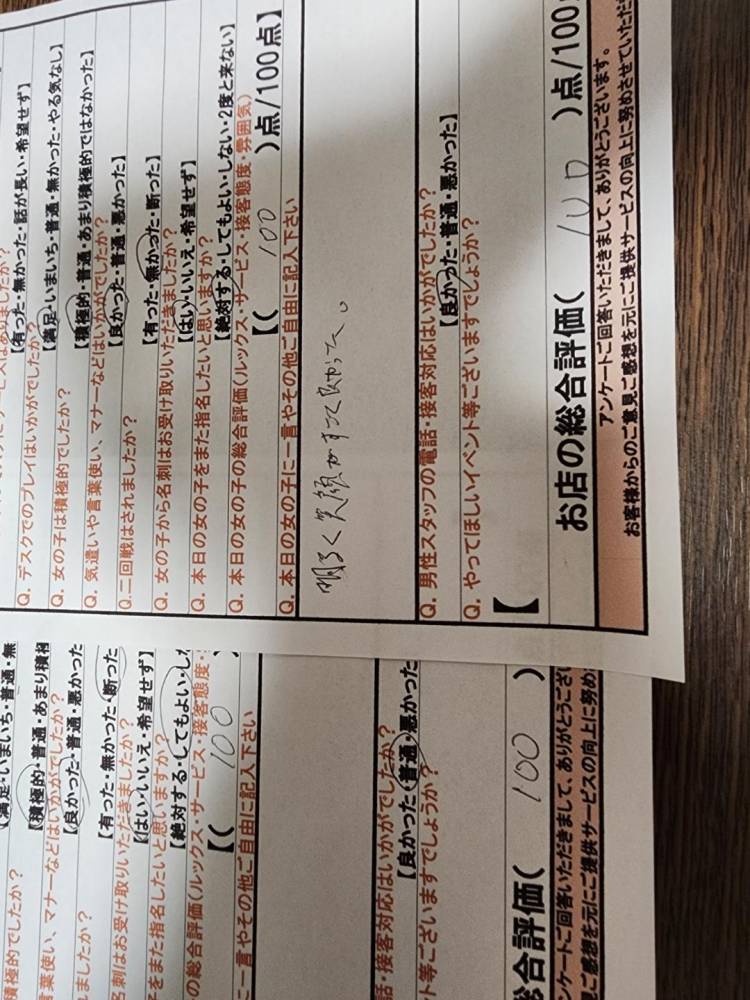 【有った・無かった・話が長い・希望せず】
Q. デスクでのプレイはいかがでしたか？
【満足・いまいち・普通・無かった・やる気なし】
Q. 女の子は積極的でしたか？
【積極的・普通・あまり積極的ではなかった】
Q. 気遣いや言葉使い、マナーなどはいかがでしたか？
【良かった・普通・悪かった】
Q.二回戦はされましたか？
【有った・無かった・断った】
Q. 女の子から名刺はお受け取りいただきましたか？
【はい・いいえ・希望せず】
Q. 本日の女の子をまた指名したいと思いますか？
【絶対する・してもよい・しない・2度と来ない】
Q. 本日の女の子の総合評価(ルックス・サービス・接客態度・雰囲気)
【( 100 )点/100点】
Q. 本日の女の子に一言やその他ご自由に記入下さい
明るく笑顔がすてで良かった。
Q. 男性スタッフの電話・接客対応はいかがでしたか？
【良かった・普通・悪かった】
Q. やってほしいイベント等ございますでしょうか？
【
お店の総合評価( 100 )点/100
アンケートご回答いただきまして、ありがとうございます。
お客様からのご意見ご感想を元にご提供サービスの向上に努めさせていただ
【満足・いまいち・普通・無
積極的でしたか？
【積極的・普通・あまり積極
言葉使い、マナーなどはいかがでしたか？
【良かった・普通・悪かった
れましたか？
【有った・無かった・断った
名刺はお受け取りいただきましたか？
【はい・いいえ・希望せず】
をまた指名したいと思いますか？
【絶対する・してもよい・し
の総合評価(ルックス・サービス・接客態度・
【( 100 )
に一言やその他ご自由に記入下さい
話・接客対応はいかがでしたか？
【良かった・普通・悪かった
ト等ございますでしょうか？
総合評価( 100 )
ンケートご回答いただきまして、ありがとうござい
ご感想を元にご提供サービスの向上に努め